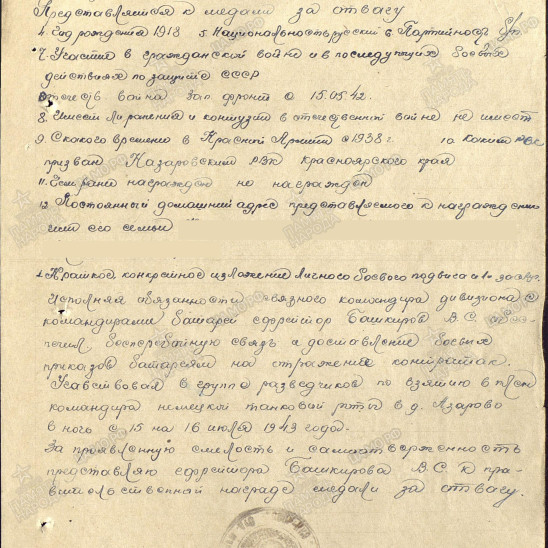 Представляется к медали за отвагу
4. Год рождения 1918 5. Национальность русский 6 Партийность б/п
7. Участие в гражданской войне и в последующих боевых
действиях по защите СССР
Отечеств война Зап. фронт с 15.05.42.
8. Имеет ли ранения и контузии в отечественной войне не имеет
9. С какого времени в Красной Армии с 1938 г. 10 Каким РВК
призван Назаровским РВК Красноярского края
11. Чем ранее награжден не награжден
12. Постоянный домашний адрес представляемого к награждению
и его семьи
1. Краткое, конкретное изложение личного боевого подвига и
Исполняя обязанности связного командира дивизиона с
командирами батарей ефрейтор Башкиров В.С. обес-
печил бесперебитную связь и доставление боевых
приказов батареям на отражение контратак.
Учавствовал в группе разведчиков по взятию в плен
командира немецкой танковой роты в д. Азарово
в ночь с 15 на 16 июля 1943 года.
За проявленную смелость и самоотверженность
представляю ефрейтора Башкирова В.С. к пра-
вительственной награде медали за отвагу.